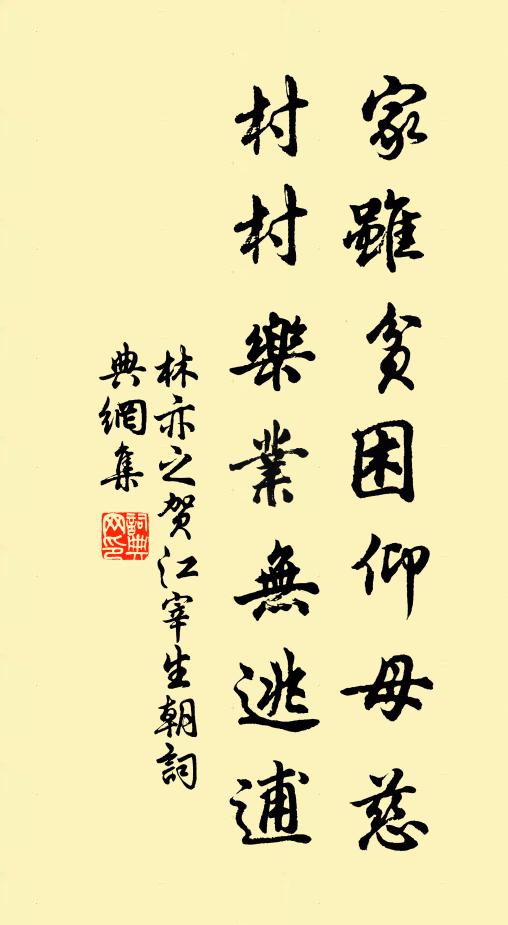 家雖貧困仰母慈
村村樂業無逃逋
林亦之賀江宰生朝詞
典網集
詞典
网印